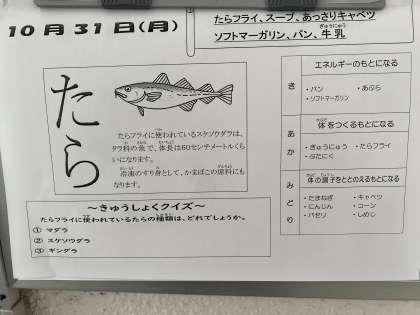 10月31日(月)
たらフライ、スープ、あっさりキャベツ
ソフトマーガリン、パン、牛乳
ぎゅうにゅう
たら
たらフライに使われているスケソウダラは、
タラ科の魚で、体長は60センチメートルくら
いになります。
冷凍のすり身として、かまぼこの原料にも
なります。
～きゅうしょくクイズ～
たらフライに使われているたらの種類は、どれでしょうか。
① マダラ
② スケソウダラ
③ ギンダラ
エネルギーのもとになる
き
・パン ・あぶら
・ソフトマーガリン
体をつくるもとになる
あか
・ぎゅうにゅう ・たらフライ
・ぶたにく
体の調子をととのえるもとになる
みどり
・たまねぎ ・キャベツ
・にんじん ・コーン
・パセリ ・しめじ